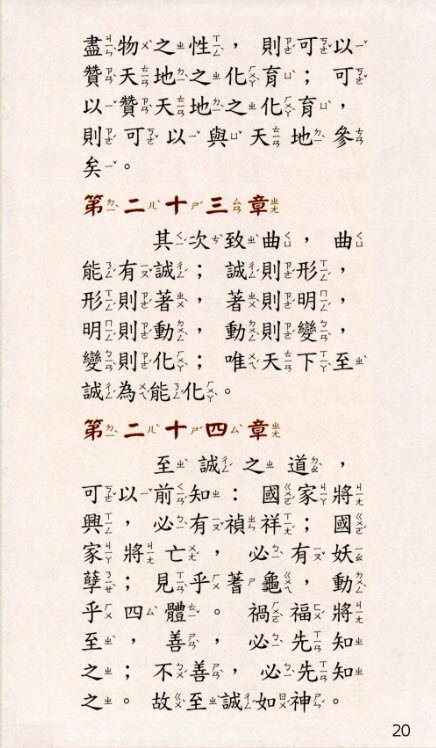 盡物之性，則可以
贊天地之化育；可
以贊天地之化育，
則可以與天地參
矣。
第二十三章
其次致曲，曲
能有誠；誠則形，
形則著，著則明，
明則動，動則變，
變則化；唯天下至
誠為能化。
第二十四章
至誠之道，
可以前知：國家將
興，必有禎祥；國
家將亡，必有妖
孽；見乎蓍龜，動
乎四體。禍福將
至，善，必先知
之；不善，必先知
之。故至誠如神。
20